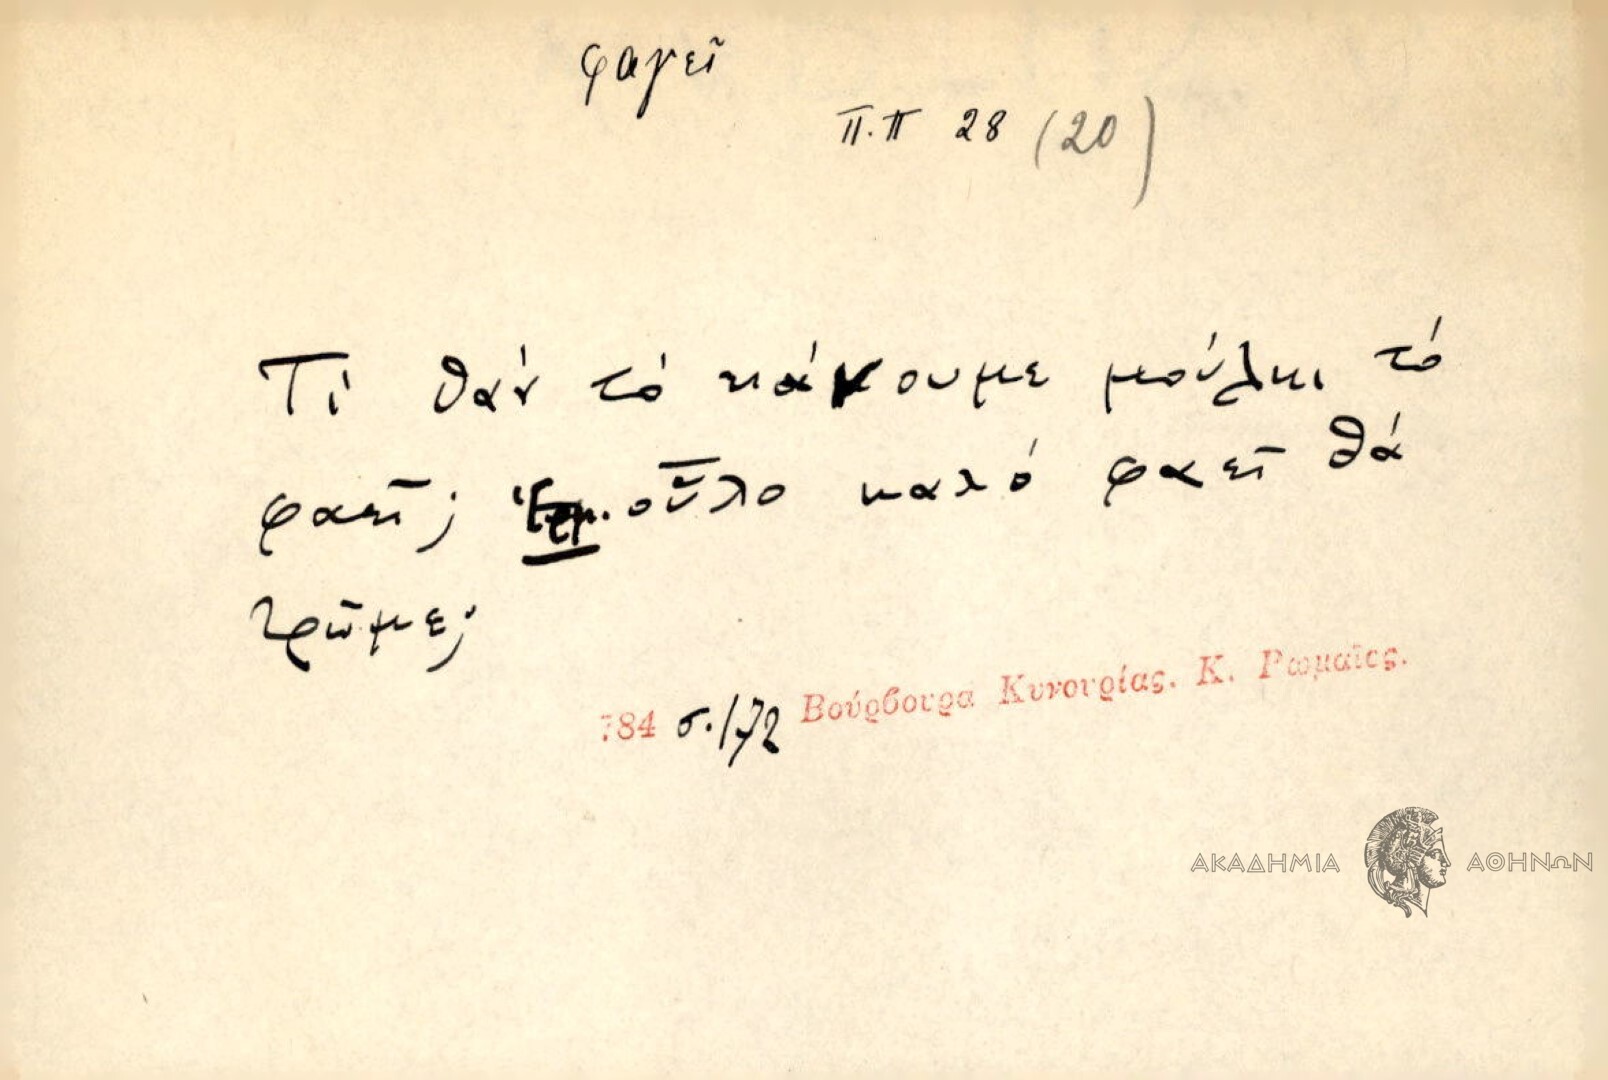 φαγεῖ
Π.Π 28 (20)
Τὶ θάν τό κάνουμε μούλκι τό
φαεῖ; Ἑρμ. οὗλο καλό φαεῖ θά
τρῶμε;
784 σ. 172 Βούρβουρα Κυνουρίας. Κ. Ρωμαῖος.
ΑΚΑΔΗΜΙΑ ΑΘΗΝΩΝ